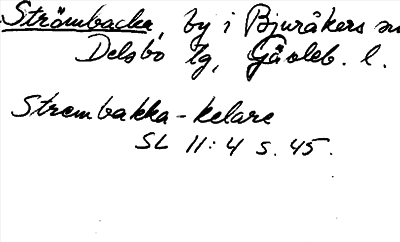 Strömbacka, by i Bjuråkers sn
Delsbo tg, Gävleb. l.
Strembakka-kelare
SL 11:4 s. 45.